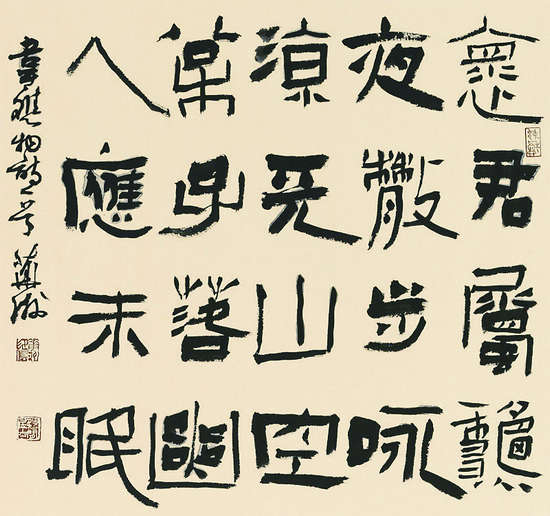 懷君屬龝
夜散步咏
凉天山空
松子落幽
人應未眠
韋應物詩一首